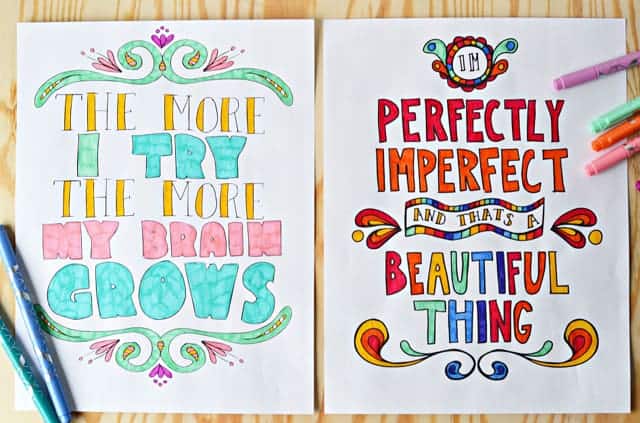 THE MORE
I TRY
THE MORE
MY BRAIN
GROWS
I'M
PERFECTLY
IMPERFECT
AND THAT'S A
BEAUTIFUL
THING